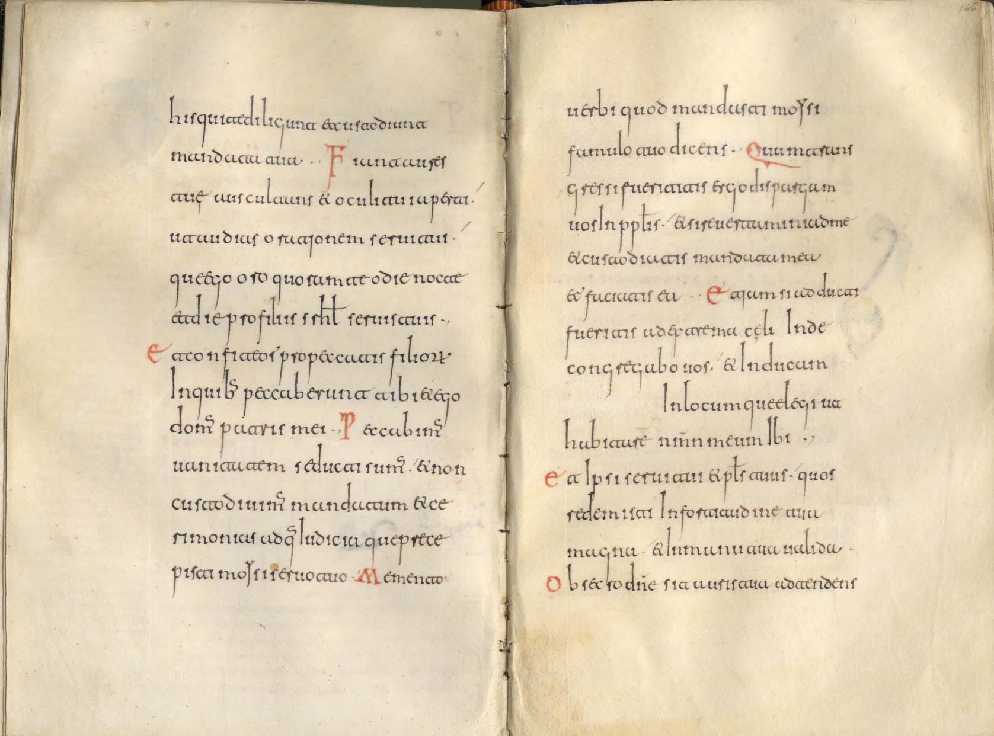 his qui te diligunt & custodiunt
mandata tua. Fiant aures
tuę auscultans & oculi tui aperti.
ut audias orationem serui tui.
que ego oro quoram te odie nocte
& die pro filiis srhl seruis tuis.
Et confiteor pro peccatis filiorꝝ
In quibꝰ peccaberunt tibi & ego
domꝰ patris mei. Peccabimꝰ
uanitatem seducti sumꝰ. & non
custodiuimꝰ mandatum & ce
rimonias adq Iudicia que prece
pisti moysi seruo tuo. Memento
uerbi quod mandasti moysi
famulo tuo dicens. Quum trans
gressi fueritis ergo dispargam
uos In ppls. & si reuertamini ad me
& custodiatis mandata mea
& faciatis ea. Etiam si abducti
fueritis ad extrema cęli Inde
congregabo uos. & Inducam
In locum que elegi ut
habitare nmn meum Ibi.
Et Ipsi serui tui & pls tuus. quos
redemisti In fortitudine tua
magna. & In manu tua ualida.
Obsecro dne sit auris tua adtendens